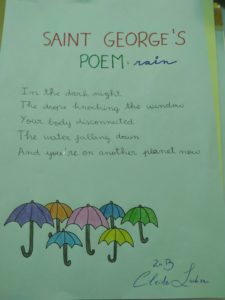 SAINT GEORGE'S
POEM: rain
In the dark night
The drops knocking the window
Your body disconnected
The water falling down
And you're on another planet now